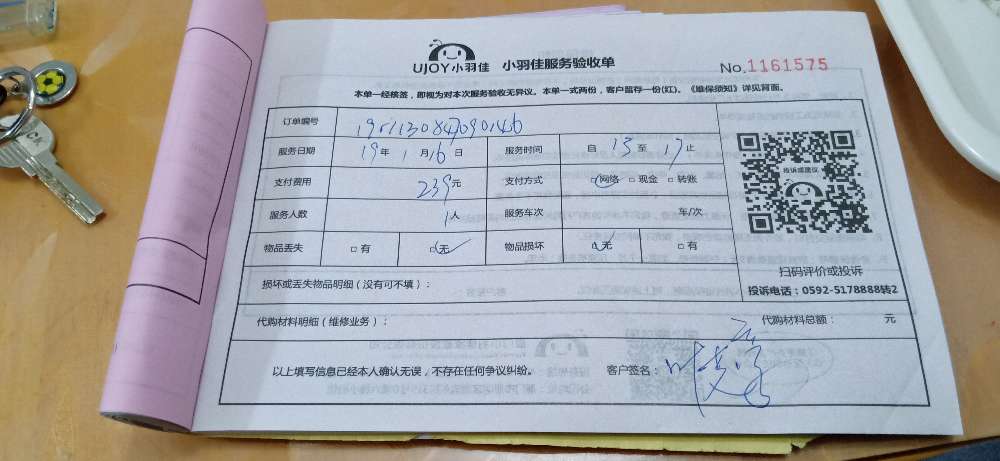 UJOY小羽佳 小羽佳服务验收单 No.1161575
本单一经核签，即视为对本次服务验收无异议。本单一式两份，客户留存一份(红)。《维保须知》详见背面。
订单编号
服务日期 19年 1月16日 服务时间 自 13 至 17 止
支付费用 239元 支付方式 □网络 □现金 □转账
服务人数 1人 服务车次 车/次
物品丢失 □有 □无 物品损坏 □无 □有
投诉或建议
扫码评价或投诉
投诉电话：0592-5178888转2
损坏或丢失物品明细（没有可不填）：
代购材料明细（维修业务）： 代购材料总额： 元
以上填写信息已经本人确认无误，不存在任何争议纠纷。 客户签名：